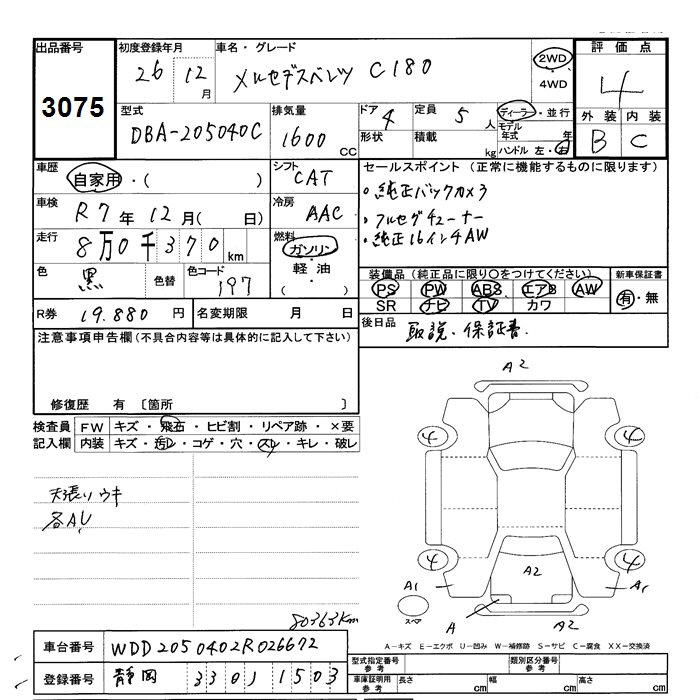 出品番号
3075
初度登録年月
26 12 月
車名・グレード
メルセデスベンツ C180
2WD
・
4WD
評価点
4
外装 内装
B C
型式
DBA-205040C
排気量
1600 CC
ドア 4
形状
定員 5 人
積載 kg
ディーラー・並行
モデル年式 年
ハンドル 左・右
車歴
自家用・( )
シフト
CAT
セールスポイント (正常に機能するものに限ります)
・純正バックカメラ
・フルセグチューナー
・純正16インチAW
車検
R7年12月( 日)
冷房
AAC
走行
8万0千370km
燃料
ガソリン
・
軽油
( ・ )
色
黒
色替
色コード
197
装備品 (純正品に限り○をつけてください)
PS PW ABS エアB AW
SR ナビ TV カワ
新車保証書
有・無
R券 19.880 円
名変期限 月 日
後日品 取説、保証書
注意事項申告欄 (不具合内容等は具体的に記入して下さい)
修復歴 有 〔箇所 〕
検査員記入欄
FW キズ・飛石・ヒビ割・リペア跡・×要
内装 キズ・汚レ・コゲ・穴・スレ・キレ・破レ
天張りウキ
各AU
80363km
A2
4 4
4 4
A1 A2 A1
スペア
A A2
A-キズ E-エクボ U-凹み W-補修跡 S-サビ C-腐食 XX-交換済
車台番号 WDD2050402R026672
登録番号 静岡 330 1 1503
型式指定番号 参考
類別区分番号 参考
車庫証明用 参考 長さ cm 幅 cm 高さ cm